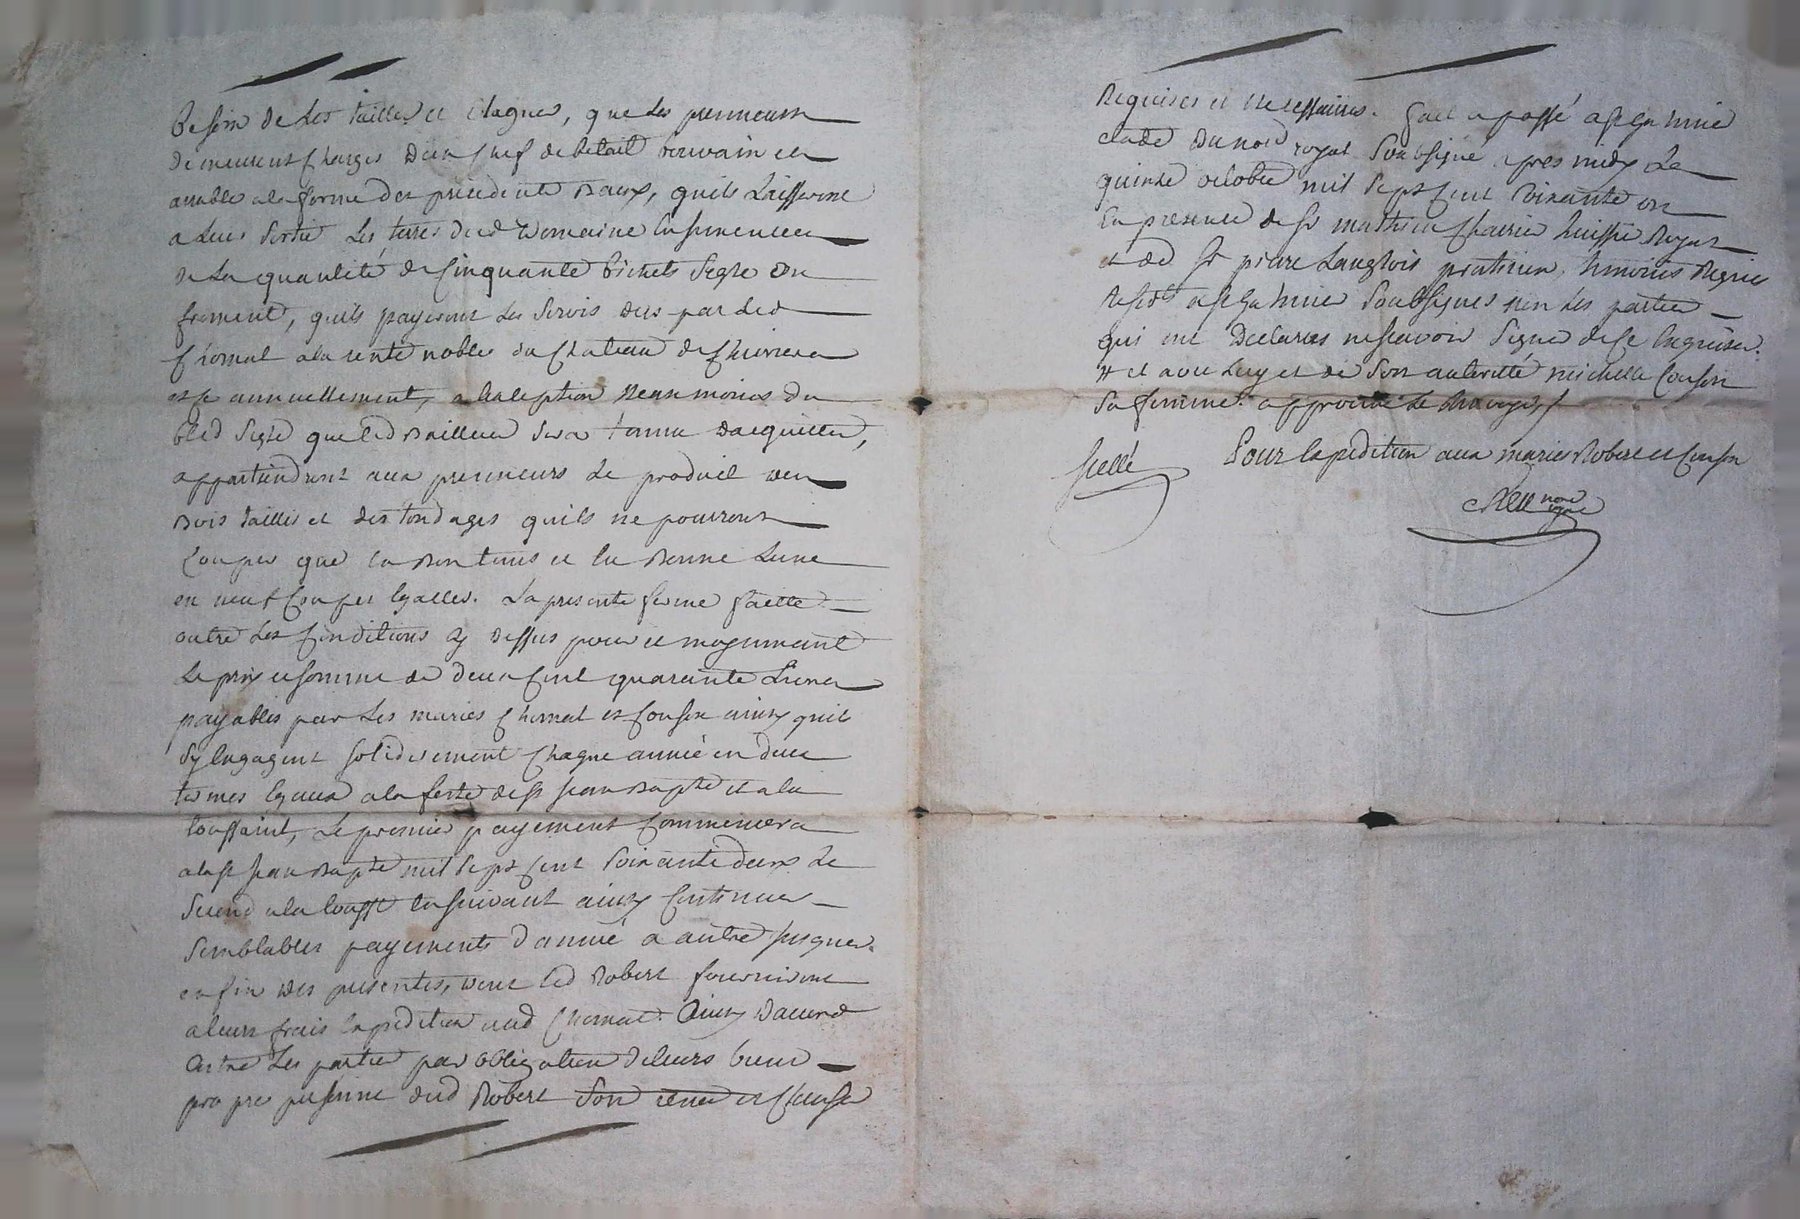 besoin de les tailler et elaguer, que les prenneurs
demeurent charges d'un chef de betail
a la forme des precedents Baux, quils laisseront
a leur sortie les terres dud Domaine ensemencées
de la quantité de cinquante bichets segle ou
froment, quils payeront les servis dus par led
Chomat a la rente noble du Chateau de
annuellement, a lexception neanmoins du
bled segle que led Bailleur sera tenu dacquitter,
appartiendront aux prenneurs le produit des
Bois taillis et des tondages quils ne pourront
couper que en Bon tems et en Bonne Lune
en neuf coupes egalles. La presente ferme faitte
outre les Conditions cy dessus pour et moyennant
le prix et somme de deux cent quarante Livres
payables par les maries et Couson ainsy quils
sy engagent solidairement chaque année en deux
termes egaux a la feste de st jean Bapte et a la
toussaint, Le premier payement commencera
a la st jean Bapte mil sept cent soixante deux le
second a la touss.t ensuivant ainsy continuer
semblables payements d'année a autre jusques
en fin des presentes, dont led Robert fourniront
a leurs frais expedition aud Chomat. Ainsy daccord
entre les parties par obligation de leurs biens
propre personne dud Robert
Requises et necessaires. fait et passé a
etude du no.re royal soubsigné apres midy le
quinze octobre mil sept cent soixante un
en presence de sr mathieu huissier Royal
et de sr pierre Langlois praticien, temoins requis
soubsignes non les parties
qui ont Declarées ne scavoir signer de ce enquises.
# et avec luy et de son autorité michelle Couson
sa femme. approuvé le Renvoy
scellé Pour Expedition aux maries Robert et Couson
no.re royal